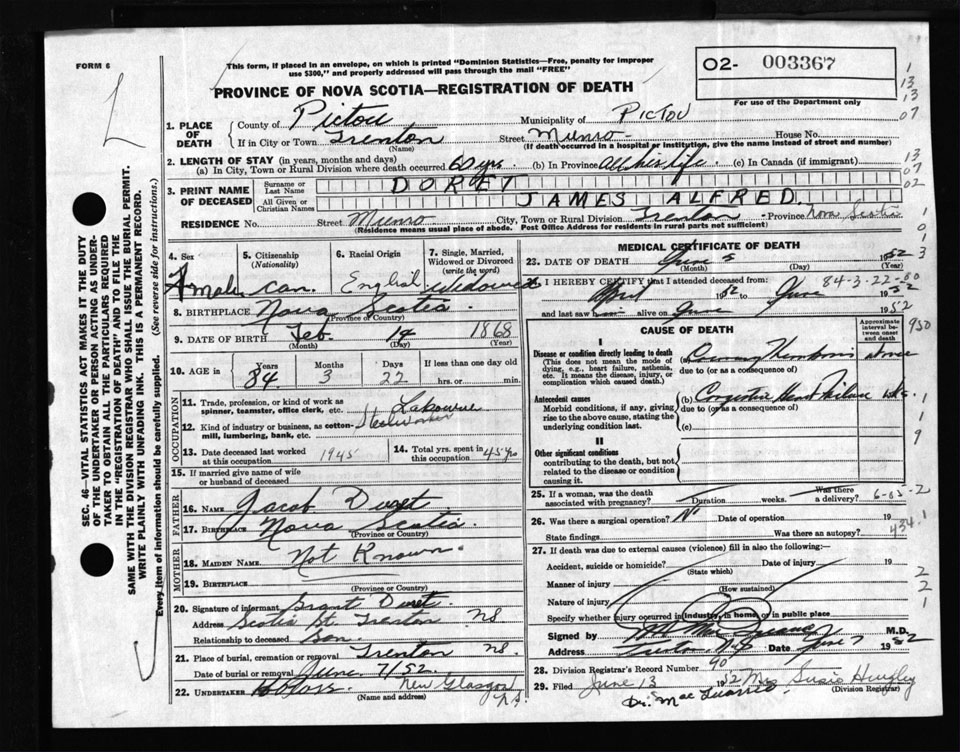 FORM 6
This form, if placed in an envelope, on which is printed "Dominion Statistics—Free, penalty for improper
use $300," and properly addressed will pass through the mail "FREE"
O2- 003367
For use of the Department only
PROVINCE OF NOVA SCOTIA—REGISTRATION OF DEATH
1. PLACE OF DEATH
County of Pictou Municipality of PICTOU
If in City or Town Trenton Street Munro House No.
(Name) (If death occurred in a hospital or institution, give the name instead of street and number)
2. LENGTH OF STAY (in years, months and days)
(a) In City, Town or Rural Division where death occurred 60 yrs. (b) In Province All his life. (c) In Canada (if immigrant)
3. PRINT NAME OF DECEASED
Surname or Last Name DORET
All Given or Christian Names JAMES ALFRED
RESIDENCE No. Street Munro City, Town or Rural Division Trenton Province Nova Scotia
(Residence means usual place of abode. Post Office Address for residents in rural parts not sufficient)
4. Sex
male
5. Citizenship (Nationality)
Can.
6. Racial Origin
English
7. Single, Married, Widowed or Divorced (write the word)
Widowed
8. BIRTHPLACE Nova Scotia
(Province or Country)
9. DATE OF BIRTH Feb. 14 1868
(Month) (Day) (Year)
10. AGE in
Years Months Days If less than one day old
84 3 22 hrs. or min.
OCCUPATION
11. Trade, profession, or kind of work as
spinner, teamster, office clerk, etc.
12. Kind of industry or business, as cotton-
mill, lumbering, bank, etc. Steelworker
13. Date deceased last worked
at this occupation 1945
14. Total yrs. spent in
this occupation 45 yrs
15. If married give name of wife
or husband of deceased
FATHER
16. NAME Jacob
17. BIRTHPLACE Nova Scotia
(Province or Country)
MOTHER
18. MAIDEN NAME Not Known
19. BIRTHPLACE
(Province or Country)
20. Signature of informant Grant
Address Scotia St. Trenton NS
Relationship to deceased Son.
21. Place of burial, cremation or removal Trenton NS.
Date of burial or removal June 7/52
22. UNDERTAKER New Glasgow
(Name and address) N.S.
MEDICAL CERTIFICATE OF DEATH
23. DATE OF DEATH June 5 1952
(Month) (Day) (Year)
84-3-22-00
I HEREBY CERTIFY that I attended deceased from:
April 52 to June 1952
and last saw alive on June 1952
CAUSE OF DEATH
Approximate interval between onset and death
I
Disease or condition directly leading to death
(This does not mean the mode of
dying, e.g., heart failure, asthenia,
etc. It means the disease, injury, or
complication which caused death.)
(a) Coronary Thrombosis
due to (or as a consequence of)
Antecedent causes
Morbid conditions, if any, giving
rise to the above cause, stating the
underlying condition last.
(b) Congestive Heart Failure
due to (or as a consequence of)
(c)
II
Other significant conditions
contributing to the death, but not
related to the disease or condition
causing it.
25. If a woman, was the death
associated with pregnancy? Duration weeks. Was there a delivery?
26. Was there a surgical operation? No Date of operation 19
State findings Was there an autopsy?
27. If death was due to external causes (violence) fill in also the following:—
Accident, suicide or homicide? Date of injury 19
(State which)
Manner of injury
(How sustained)
Nature of injury
Specify whether injury occurred in industry, in home or in public place
Signed by M.D.
Address Trenton, N.S. Date June 7 1952
28. Division Registrar's Record Number 40
29. Filed June 13 1952 Mrs Susie
(Division Registrar)
SEC. 46—VITAL STATISTICS ACT MAKES IT THE DUTY
OF THE UNDERTAKER OR PERSON ACTING AS UNDER-
TAKER TO OBTAIN ALL THE PARTICULARS REQUIRED
IN THE "REGISTRATION OF DEATH" AND TO FILE THE
SAME WITH THE DIVISION REGISTRAR WHO SHALL ISSUE THE BURIAL PERMIT.
WRITE PLAINLY WITH UNFADING INK. THIS IS A PERMANENT RECORD.
Every item of information should be carefully supplied. (See reverse side for instructions.)